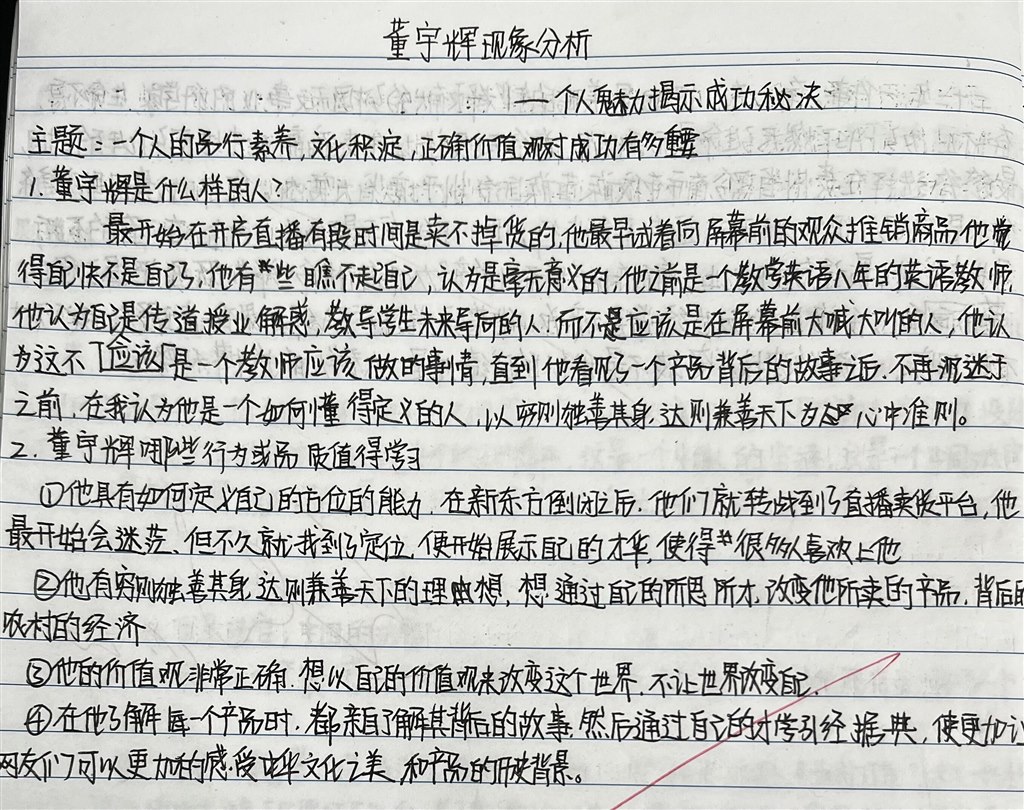 董宇辉现象分析
——个人魅力揭示成功秘决
主题：一个人的品行素养，文化积淀，正确价值观对成功有多重要
1. 董宇辉是什么样的人？
最开始在开启直播有段时间是卖不掉货的，他最早试着向屏幕前的观众推销商品，他觉
得自己快不是自己了，他有些瞧不起自己，认为是毫无意义的，他之前是一个教学英语八年的英语教师，
他认为自己是传道授业解惑，教导学生未来导向的人，而不是应该是在屏幕前大喊大叫的人，他认
为这不「应该」是一个教师应该做的事情，直到他看见了一个产品背后的故事之后，不再迷于
之前，在我认为他是一个如何懂得定义的人，以穷则独善其身，达则兼善天下为心中准则。
2. 董宇辉哪些行为或品质值得学习
①他具有如何定义自己的方位的能力，在新东方倒闭之后，他们就转战到了直播卖货平台，他
最开始会迷茫、但不久就找到了定位，便开始展示自己的才华，使得很多人喜欢上他
②他有穷则独善其身，达则兼善天下的理想，想通过自己的所思所才，改变他所卖的产品，背后的
农村的经济
③他的价值观非常正确，想以自己的价值观来改变这个世界，不让世界改变自己.
④在他了解每一个产品时，都亲自了解其背后的故事，然后通过自己的才学引经据典，使更加让
网友们可以更加的感受中华文化之美，和产品的历史背景。